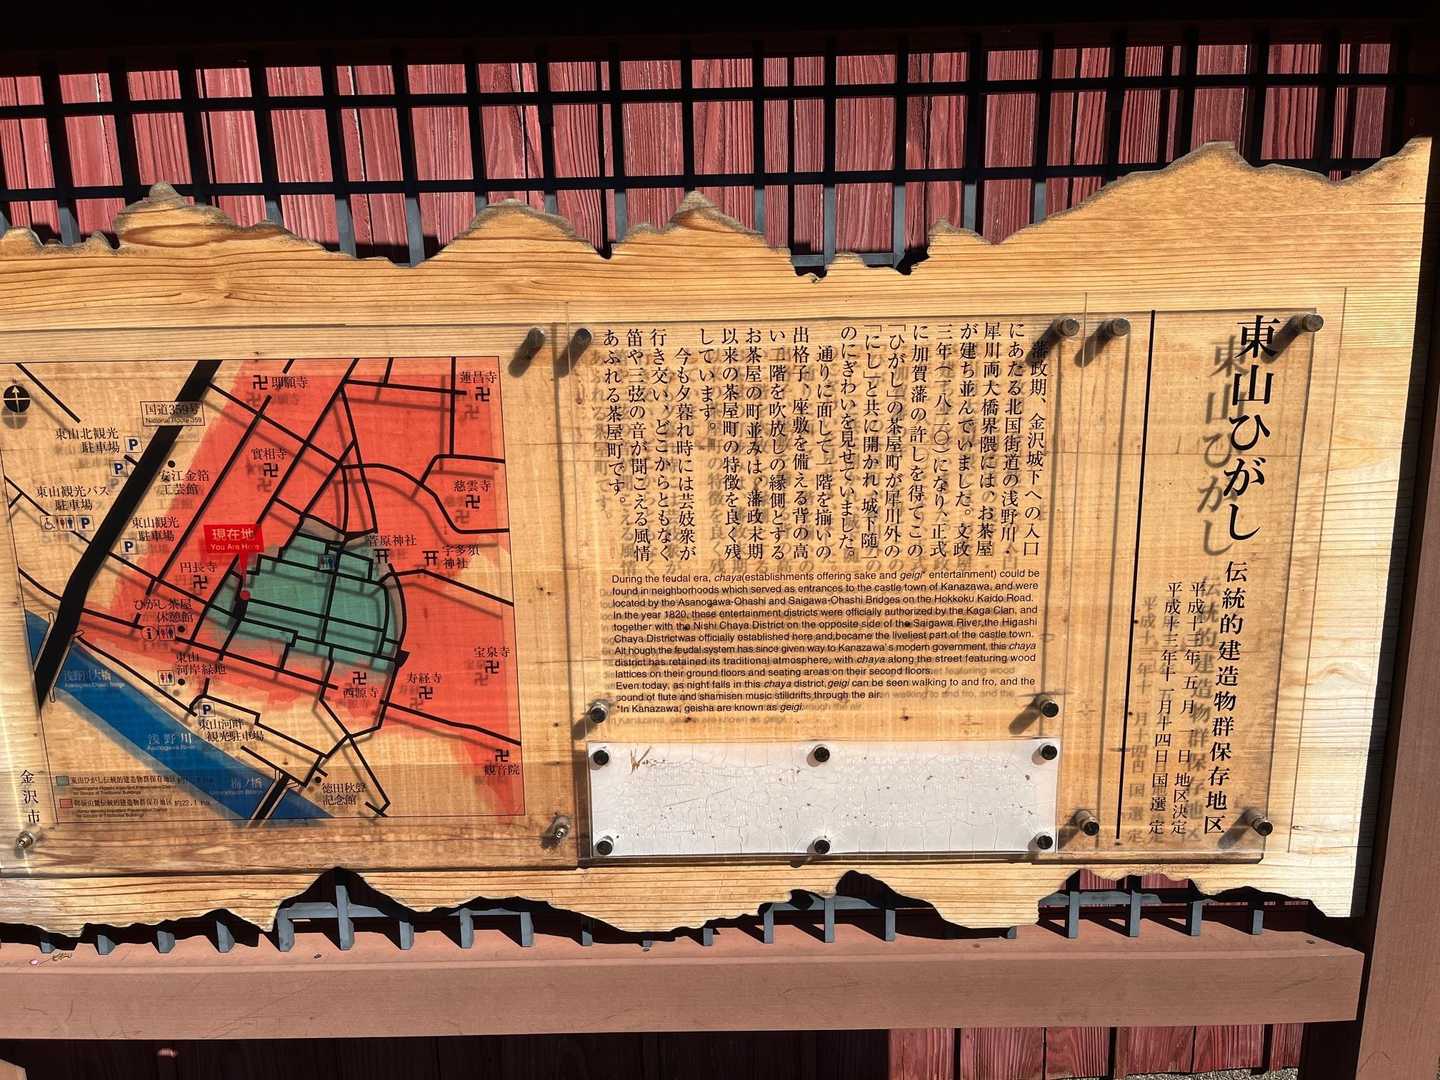 東山ひがし 伝統的建造物群保存地区
平成十三年 五月 一 日 地区決定
平成十三年十一月十四日 国選 定
藩政期、金沢城下への入口
にあたる北国街道の浅野川・
犀川両大橋界隈にはお茶屋
が建ち並んでいました。文政
三年(一八二〇)になり、正式
に加賀藩の許しを得てこの
「ひがし」の茶屋町が犀川外の
「にし」と共に開かれ、城下随一
のにぎわいを見せていました。
通りに面して一階を揃いの
出格子、座敷を備える背の高
い二階を吹放しの縁側とする
お茶屋の町並みは、藩政末期
以来の茶屋町の特徴を良く残
しています。
今も夕暮れ時には芸妓衆が
行き交い、どこからともなく
笛や三弦の音が聞こえる風情
あふれる茶屋町です。
During the feudal era, chaya(establishments offering sake and geigi* entertainment) could be
found in neighborhoods which served as entrances to the castle town of Kanazawa, and were
located by the Asanogawa-Ohashi and Saigawa-Ohashi Bridges on the Hokkoku Kaido Road.
In the year 1820, these entertainment districts were officially authorized by the Kaga Clan, and
together with the Nishi Chaya District on the opposite side of the Saigawa River,the Higashi
Chaya Districtwas officially established here and became the liveliest part of the castle town.
Alt hough the feudal system has since given way to Kanazawa's modern government, this chaya
district has retained its traditional atmosphere, with chaya along the street featuring wood
lattices on their ground floors and seating areas on their second floors.
Even today, as night falls in this chaya district,geigi can be seen walking to and fro, and the
sound of flute and shamisen music stilldrifts through the air.
*In Kanazawa, geisha are known as geigi.
卍 即願寺
蓮昌寺 卍
国道359号
National Route 359
東山北観光
駐車場 P
P
安江金箔
工芸館
實相寺
卍
慈雲寺
卍
東山観光バス
駐車場
P
東山観光
駐車場
P
現在地
You Are Here
菅原神社
宇多須
神社
円長寺 卍
ひがし茶屋
休憩館
東山
河岸緑地
宝泉寺
卍
寿経寺
卍
卍
西源寺
浅野川大橋
P
東山河畔
観光駐車場
浅野川
Asanogawa River
卍
観音院
梅ノ橋
徳田秋聲
記念館
東山ひがし伝統的建造物群保存地区
金沢市